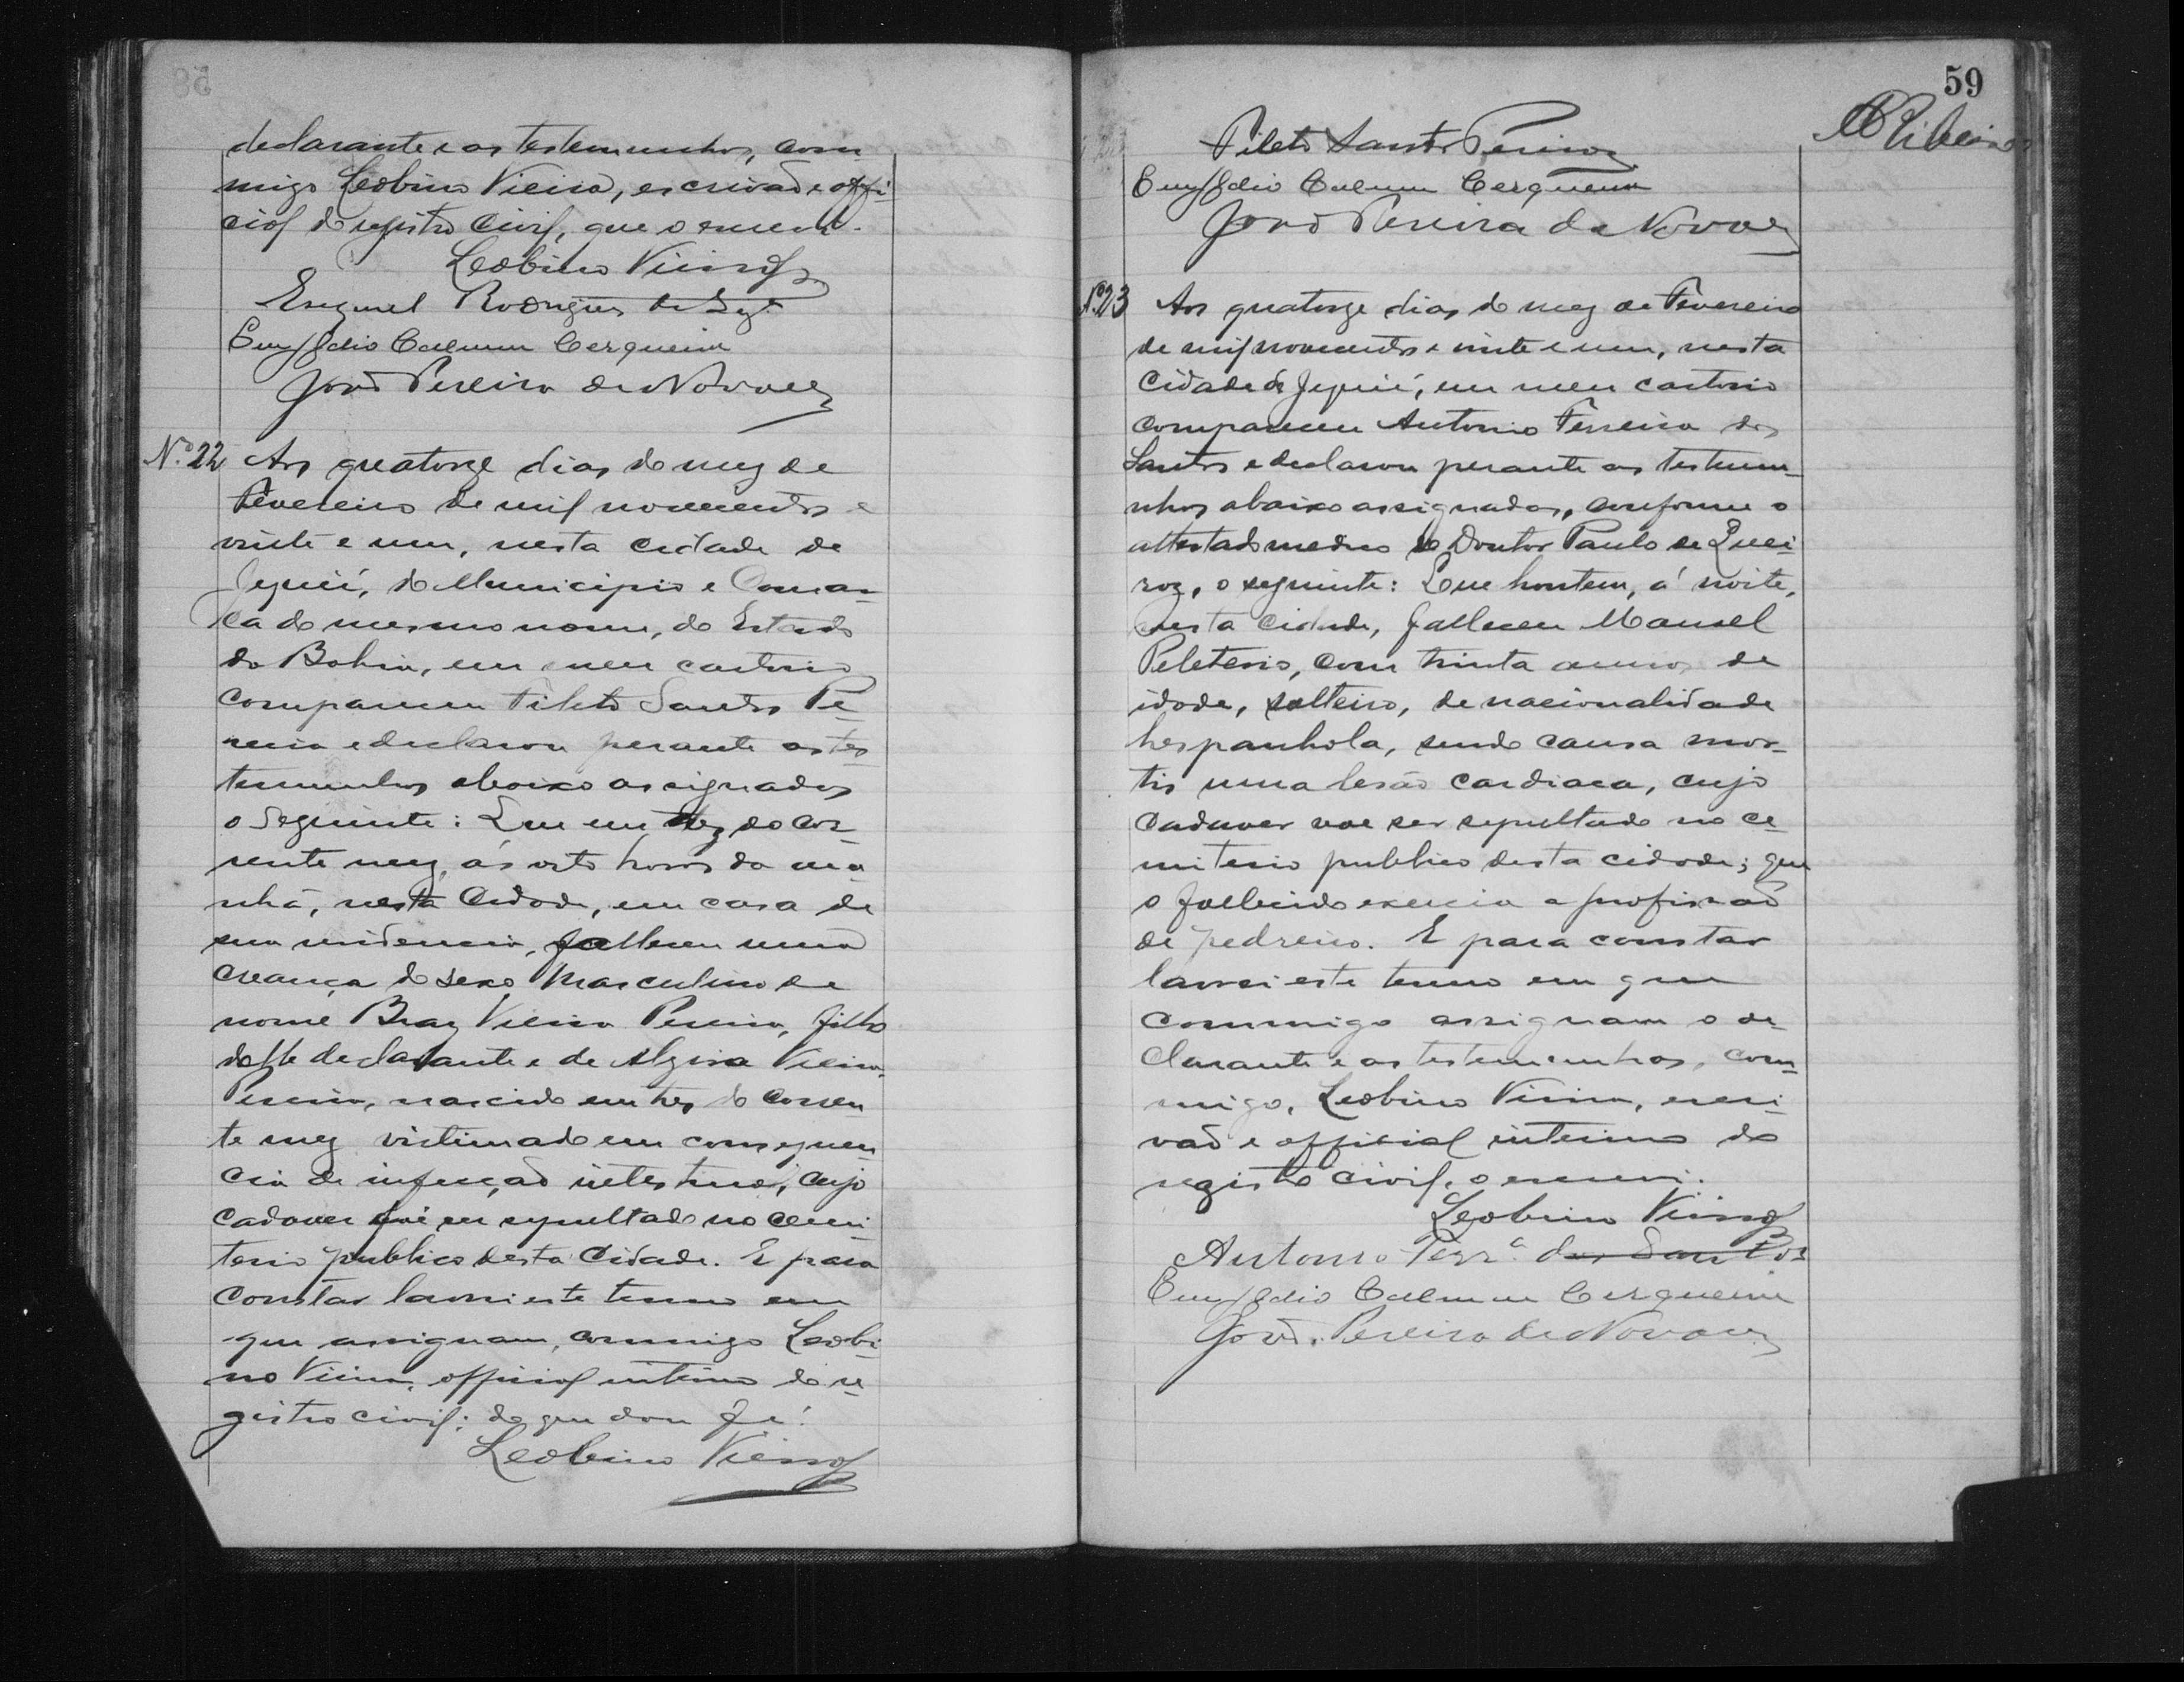 declarante e as testemunhas, com
migo Leobino Vieira, escrivão e offi
cial do registro civil, que o escrevi.
Leobino Vieira
Ezequiel Rodrigues de
Calmon Cerqueira
João Pereira de Novaes
N.º 22 Aos quatorze dias do mez de
Fevereiro de mil novecentos e
vinte e um, nesta cidade de
Jequié, do Municipio e Comar-
ca do mesmo nome, do Estado
da Bahia, em meu cartorio
compareceu Fileto Santos Pe-
reira e declarou perante as tes-
temunhas abaixo assignadas
o seguinte: Que em dez do cor-
rente mez, ás oito horas da ma-
nhã, nesta Cidade, em casa de
sua residencia, falleceu uma
creança do sexo masculino de
nome Braz Vieira Pereira, filho
delle declarante e de Alzira Vieira
Pereira, nascido em tres do corren
te mez victimado em consequen
cia de infecção intestinal, cujo
cadaver foi ser sepultado no cemi
terio publico desta Cidade. E para
constar lavrei este termo em
que assignam, commigo Leobi-
no Vieira, official interino do re-
gistro civil; do que dou fé.
Leobino Vieira
59
Ribeiro
Fileto Santos Pereira
Calmon Cerqueira
João Pereira de Novaes
N.º 23 Aos quatorze dias do mez de Fevereiro
de mil novecentos e vinte e um, nesta
Cidade de Jequié, em meu cartorio
compareceu Antonio Ferreira dos
Santos e declarou perante as testemu-
nhas abaixo assignadas, conforme o
attestado medico do Doutor Paulo de Quei-
roz, o seguinte: Que hontem, á noite,
nesta cidade, falleceu Manoel
Peleterio, com trinta annos de
idade, solteiro, de nacionalidade
hespanhola, sendo causa mor-
tis uma lesão cardiaca, cujo
cadaver vae ser sepultado no ce-
miterio publico desta cidade; que
o fallecido exercia a profissão
de pedreiro. E para constar
lavrei este termo em que
commigo assignam o de-
clarante e as testemunhas, com-
migo, Leobino Vieira, escri-
vão e official interino do
registro civil, o escrevi.
Leobino Vieira
Antonio Ferr.ª dos Santos
Calmon Cerqueira
João Pereira de Novaes